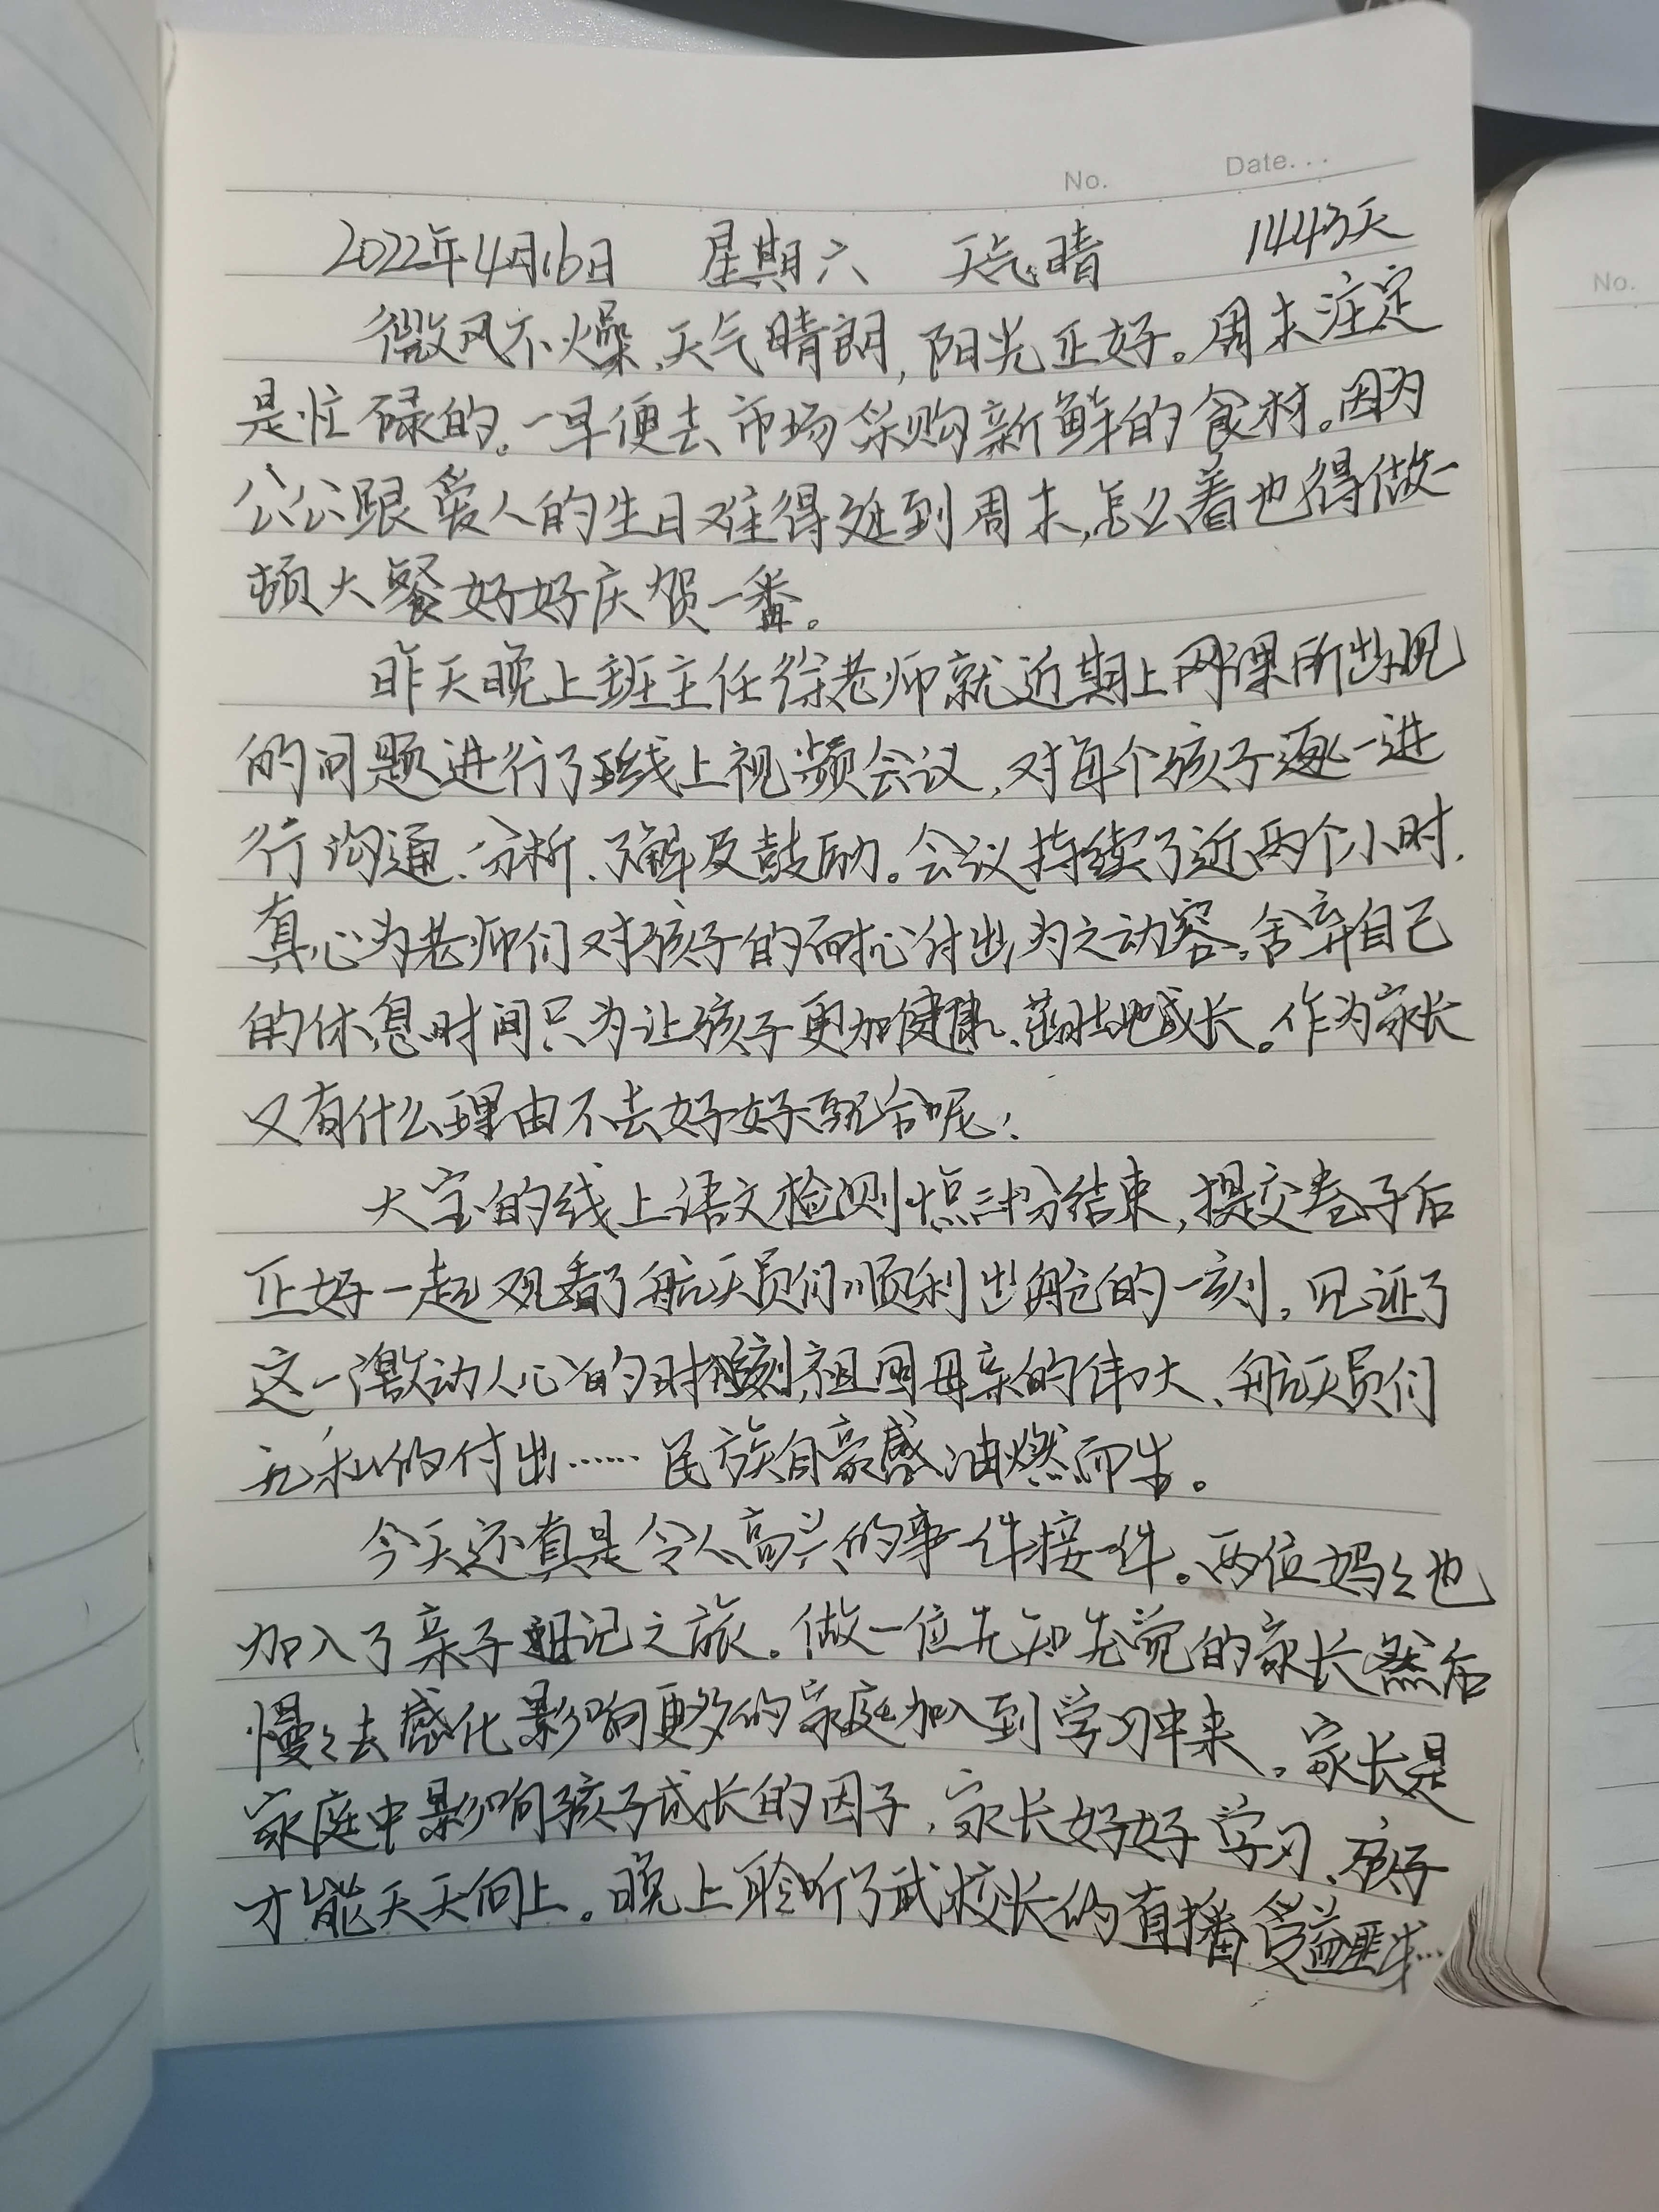 No. Date...
2022年4月16日 星期六 天气:晴 1443天
微风不燥、天气晴朗,阳光正好。周末注定
是忙碌的。一早便去市场采购新鲜的食材。因为
公公跟爱人的生日难得赶到周末,怎么着也得做一
顿大餐好好庆贺一番。
昨天晚上班主任徐老师就近期上网课所出现
的问题进行了线上视频会议,对每个孩子逐一进
行沟通、分析、了解及鼓励。会议持续了近两个小时,
真心为老师们对孩子的耐心付出为之动容。舍弃自己
的休息时间只为让孩子更加健康、茁壮地成长。作为家长
又有什么理由不去好好配合呢!
大宝的线上语文检测十点三十分结束,提交卷子后
正好一起观看了航天员们顺利出舱的一刻,见证了
这一激动人心的时刻,祖国母亲的伟大、航天员们
无私的付出……民族自豪感油燃而生。
今天还真是令人高兴的事一件接一件。两位妈々也
加入了亲子日记之旅。做一位先知先觉的家长然后
慢々去感化影响更多的家庭加入到学习中来。家长是
家庭中影响孩子成长的因子,家长好好学习、孩子
才能天天向上。晚上聆听了武校长的直播受益匪浅…
No.